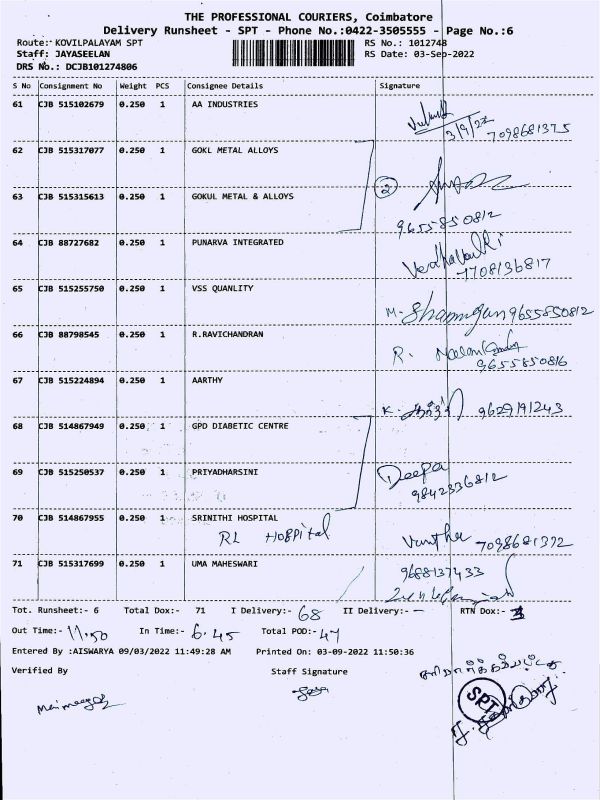 THE PROFESSIONAL COURIERS, Coimbatore
Delivery Runsheet - SPT - Phone No.:0422-3505555 - Page No.:6
Route:- KOVILPALAYAM SPT RS No.: 1012748
Staff: JAYASEELAN RS Date: 03-Sep-2022
DRS No.: DCJB101274806
S No Consignment No Weight PCS Consignee Details Signature
61 CJB 515102679 0.250 1 AA INDUSTRIES
3/9/22 7098681375
62 CJB 515317077 0.250 1 GOKL METAL ALLOYS
2
63 CJB 515315613 0.250 1 GOKUL METAL & ALLOYS
9655850812
64 CJB 88727682 0.250 1 PUNARVA INTEGRATED
7708136817
65 CJB 515255750 0.250 1 VSS QUANLITY
M. Shanmugan 9655850812
66 CJB 88798545 0.250 1 R.RAVICHANDRAN
R.
9655850816
67 CJB 515224894 0.250 1 AARTHY
K. 9629191243
68 CJB 514867949 0.250 1 GPD DIABETIC CENTRE
69 CJB 515250537 0.250 1 PRIYADHARSINI
Deepa
9842336812
70 CJB 514867955 0.250 1 SRINITHI HOSPITAL
RL HOSPital
7098681372
71 CJB 515317699 0.250 1 UMA MAHESWARI
9688137433
Tot. Runsheet:- 6 Total Dox:- 71 I Delivery:- 68 II Delivery:- - RTN Dox:- 3
Out Time:- 11.50 In Time:- 6.45 Total POD:- 47
Entered By :AISWARYA 09/03/2022 11:49:28 AM Printed On: 03-09-2022 11:50:36
Verified By Staff Signature
SPT